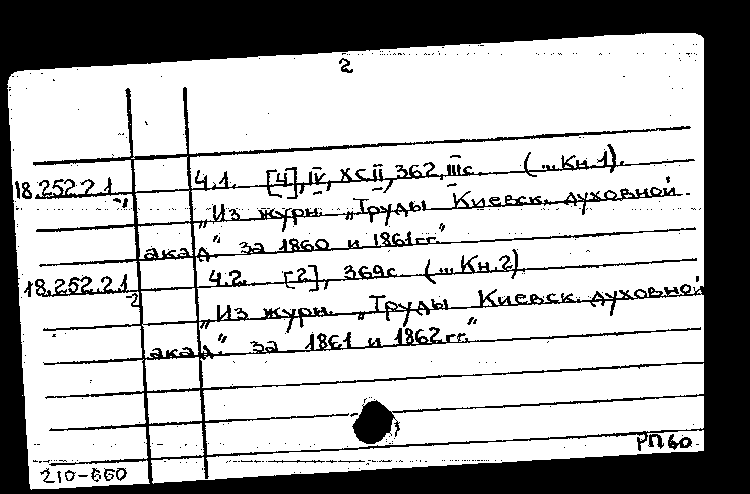 2
18.252.2.1 Ч.1. [4], IV, XCII, 362, III с. (...Кн.1).
-1 „Из журн. „Труды Киевск. духовной
акад.“ за 1860 и 1861 гг.“
18.252.2.1 Ч.2. [2], 369 с. (...Кн.2).
-2 „Из журн. „Труды Киевск. духовной
акад.“ за 1861 и 1862 гг.“
РП 60
210-660